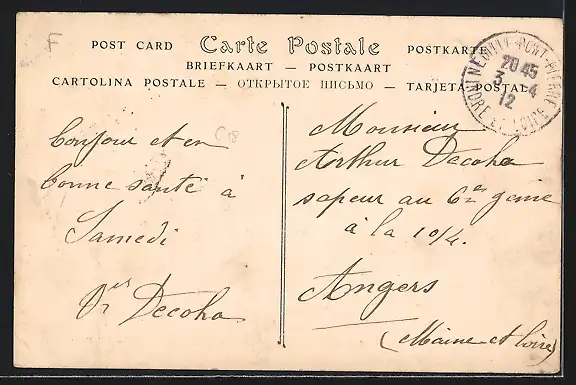 F
POST CARD Carte Postale POSTKARTE
BRIEFKAART — POSTKAART
CARTOLINA POSTALE — ОТКРЫТОЕ ПИСЬМО — TARJETA POSTAL
NEUILLÉ-PONT-PIERRE
20 45
3 - 4
12
INDRE ET LOIRE
C18
Bonjour et en
bonne santé à
Samedi
Decoha
Monsieur
Arthur Decoha
sapeur au 6e génie
à la 10/4.
Angers
(Maine et Loire)